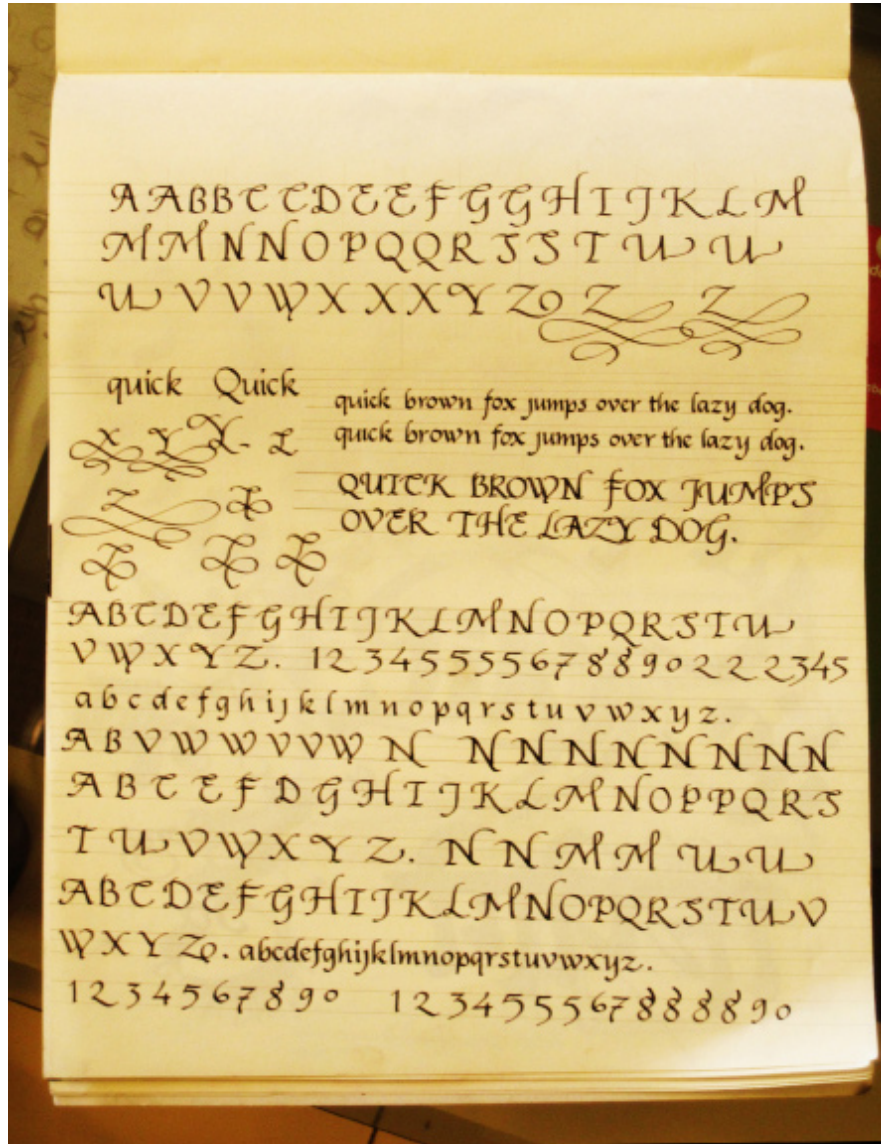 A A B B C C D E E F G G H I J K L M
M M N N O P Q Q R S S T U U
U V V W X X X Y Z Z Z
quick Quick
X Y Y L
Z Z
Z Z Z
quick brown fox jumps over the lazy dog.
quick brown fox jumps over the lazy dog.
QUICK BROWN FOX JUMPS
OVER THE LAZY DOG.
A B C D E F G H I J K L M N O P Q R S T U
V W X Y Z. 1 2 3 4 5 5 5 5 6 7 8 8 9 0 2 2 2 3 4 5
a b c d e f g h i j k l m n o p q r s t u v w x y z.
A B V W W V V W N N N N N N N N N
A B C E F D G H I J K L M N O P P Q R S
T U V W X Y Z. N N M M U U
A B C D E F G H I J K L M N O P Q R S T U V
W X Y Z. abcdefghijklmnopqrstuvwxyz.
1 2 3 4 5 6 7 8 9 0 1 2 3 4 5 5 5 6 7 8 8 8 8 9 0